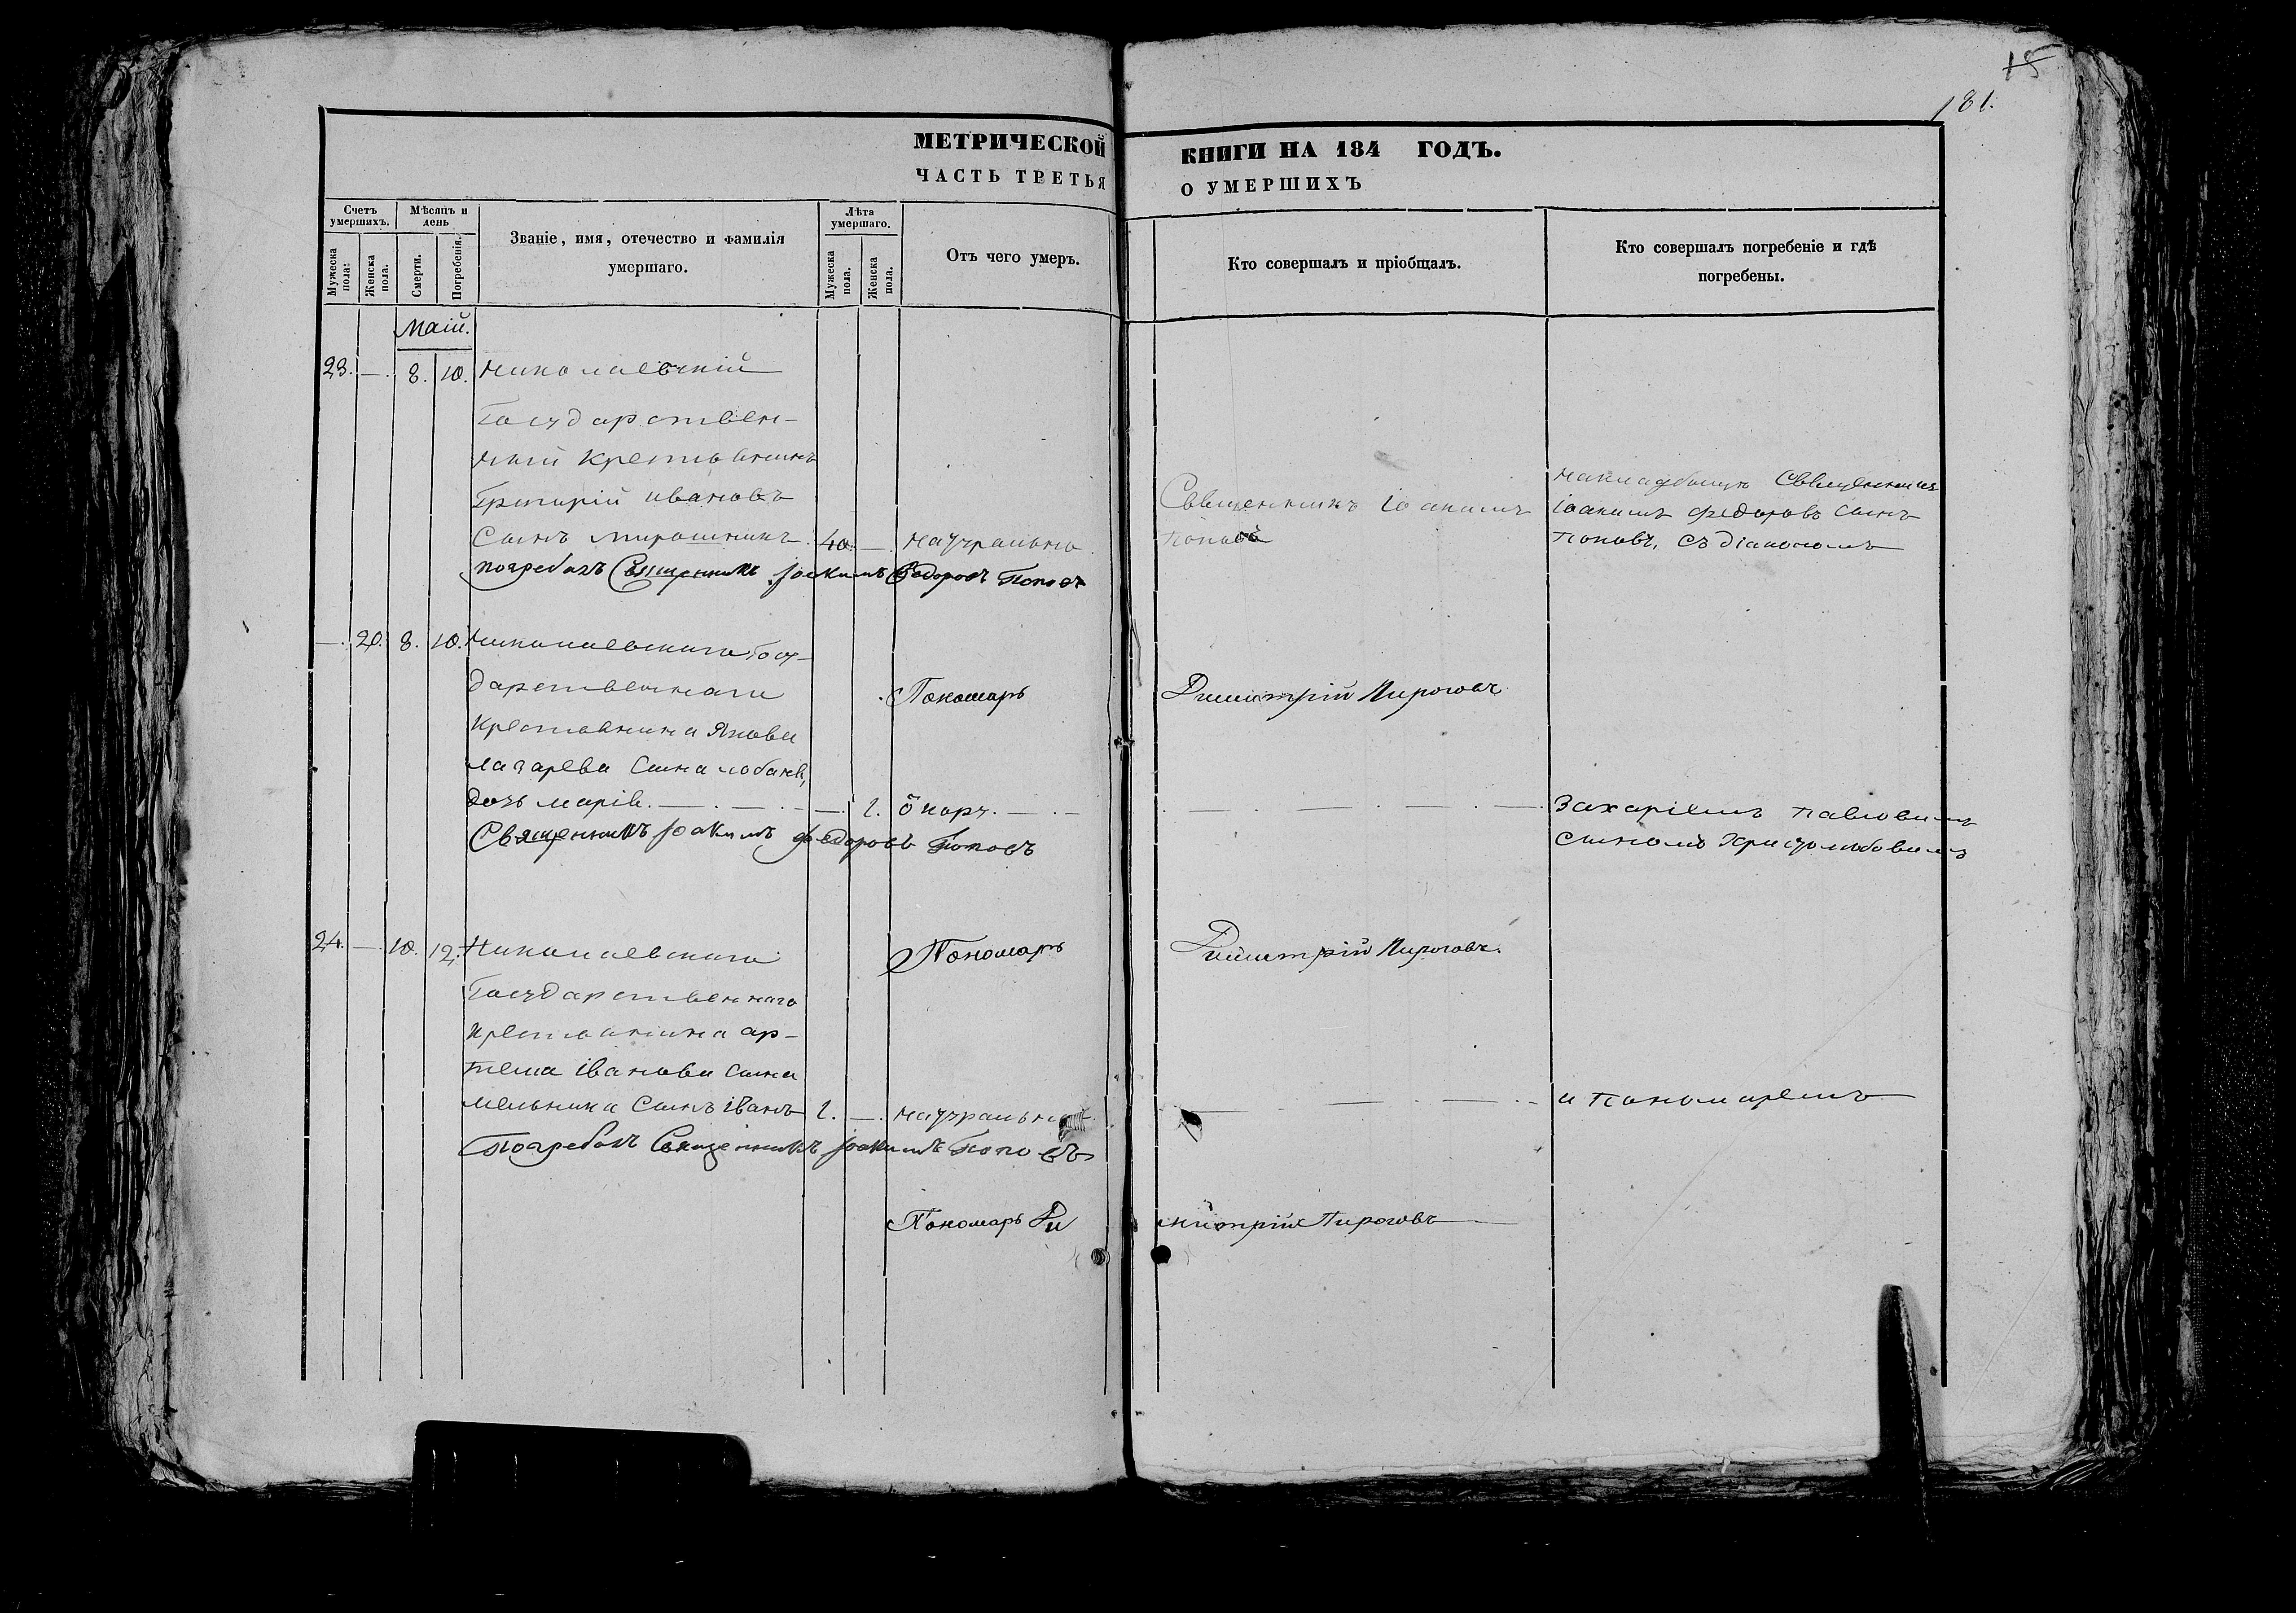 15
181.
МЕТРИЧЕСКОЙ КНИГИ НА 184 ГОДЪ.
ЧАСТЬ ТРЕТЬЯ О УМЕРШИХЪ
Счетъ умершихъ.
Мужеска пола:
Женска пола.
Мѣсяцъ и день
Смерти.
Погребенія.
Званіе, имя, отечество и фамилія
умершаго.
Лѣта умершаго.
Мужеска пола.
Женска пола.
Отъ чего умеръ.
Кто совершалъ и пріобщалъ.
Кто совершалъ погребеніе и гдѣ
погребены.
Маій.
23. — 8. 10. Николаевскій
Государствен-
ный Крестьянинъ
Григорій ивановъ
Сынъ мирошникъ. 40. — натурально.
погребалъ Священникъ Іоакимъ Федоровъ Поповъ
Священникъ іоакимъ
поповъ
накладбищѣ Священникъ
іоакимъ федоровъ сынъ
поповъ, съ діакономъ
— 20. 8. 10. николаевскаго Госу-
дарственнаго
Крестьянина Якова
лазарева сына лобана,
дочь марія. — 1. ѿ кора.
Священникъ Іоакимъ федоровъ Поповъ
Пономарь Димитрій Пироговъ
захаріемъ павловымъ
сыномъ христолюбовымъ
24. — 10. 12. Николаевскаго
Государственнаго
крестьянина ар-
тема іванова сына
мельника сынъ іванъ 1. — натурально
Погребалъ Священникъ Іоакимъ Поповъ
Пономарь Димитрій Пироговъ.
и пономаремъ
Пономарь Димитрій Пироговъ